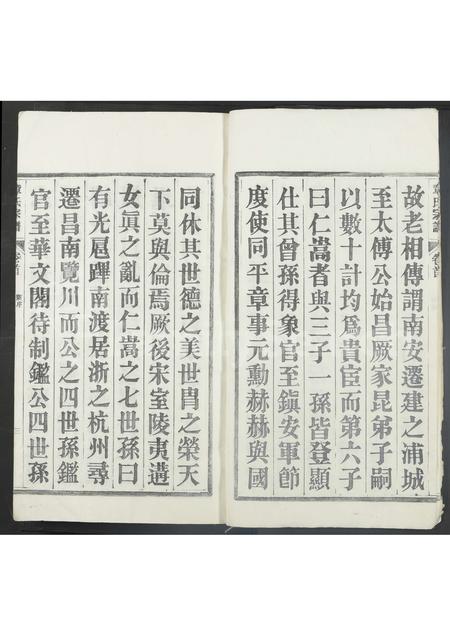 故老相傳謂南安遷建之浦城
至太傅公始昌厥家昆弟子嗣
以數十計均爲貴臣而第六子
曰仁嵩者與三子一孫皆登顯
仕其曾孫得象官至鎮安軍節
度使同平章事元勳赫赫與國
同休其世德之美世冑之榮天
下莫與倫焉厥後宋室陵夷遘
女眞之亂而仁嵩之七世孫曰
有光扈蹕南渡居浙之杭州尋
遷昌南覽川而公之四世孫鑑
官至華文閣待制鑑公四世孫
章氏宗譜
卷首